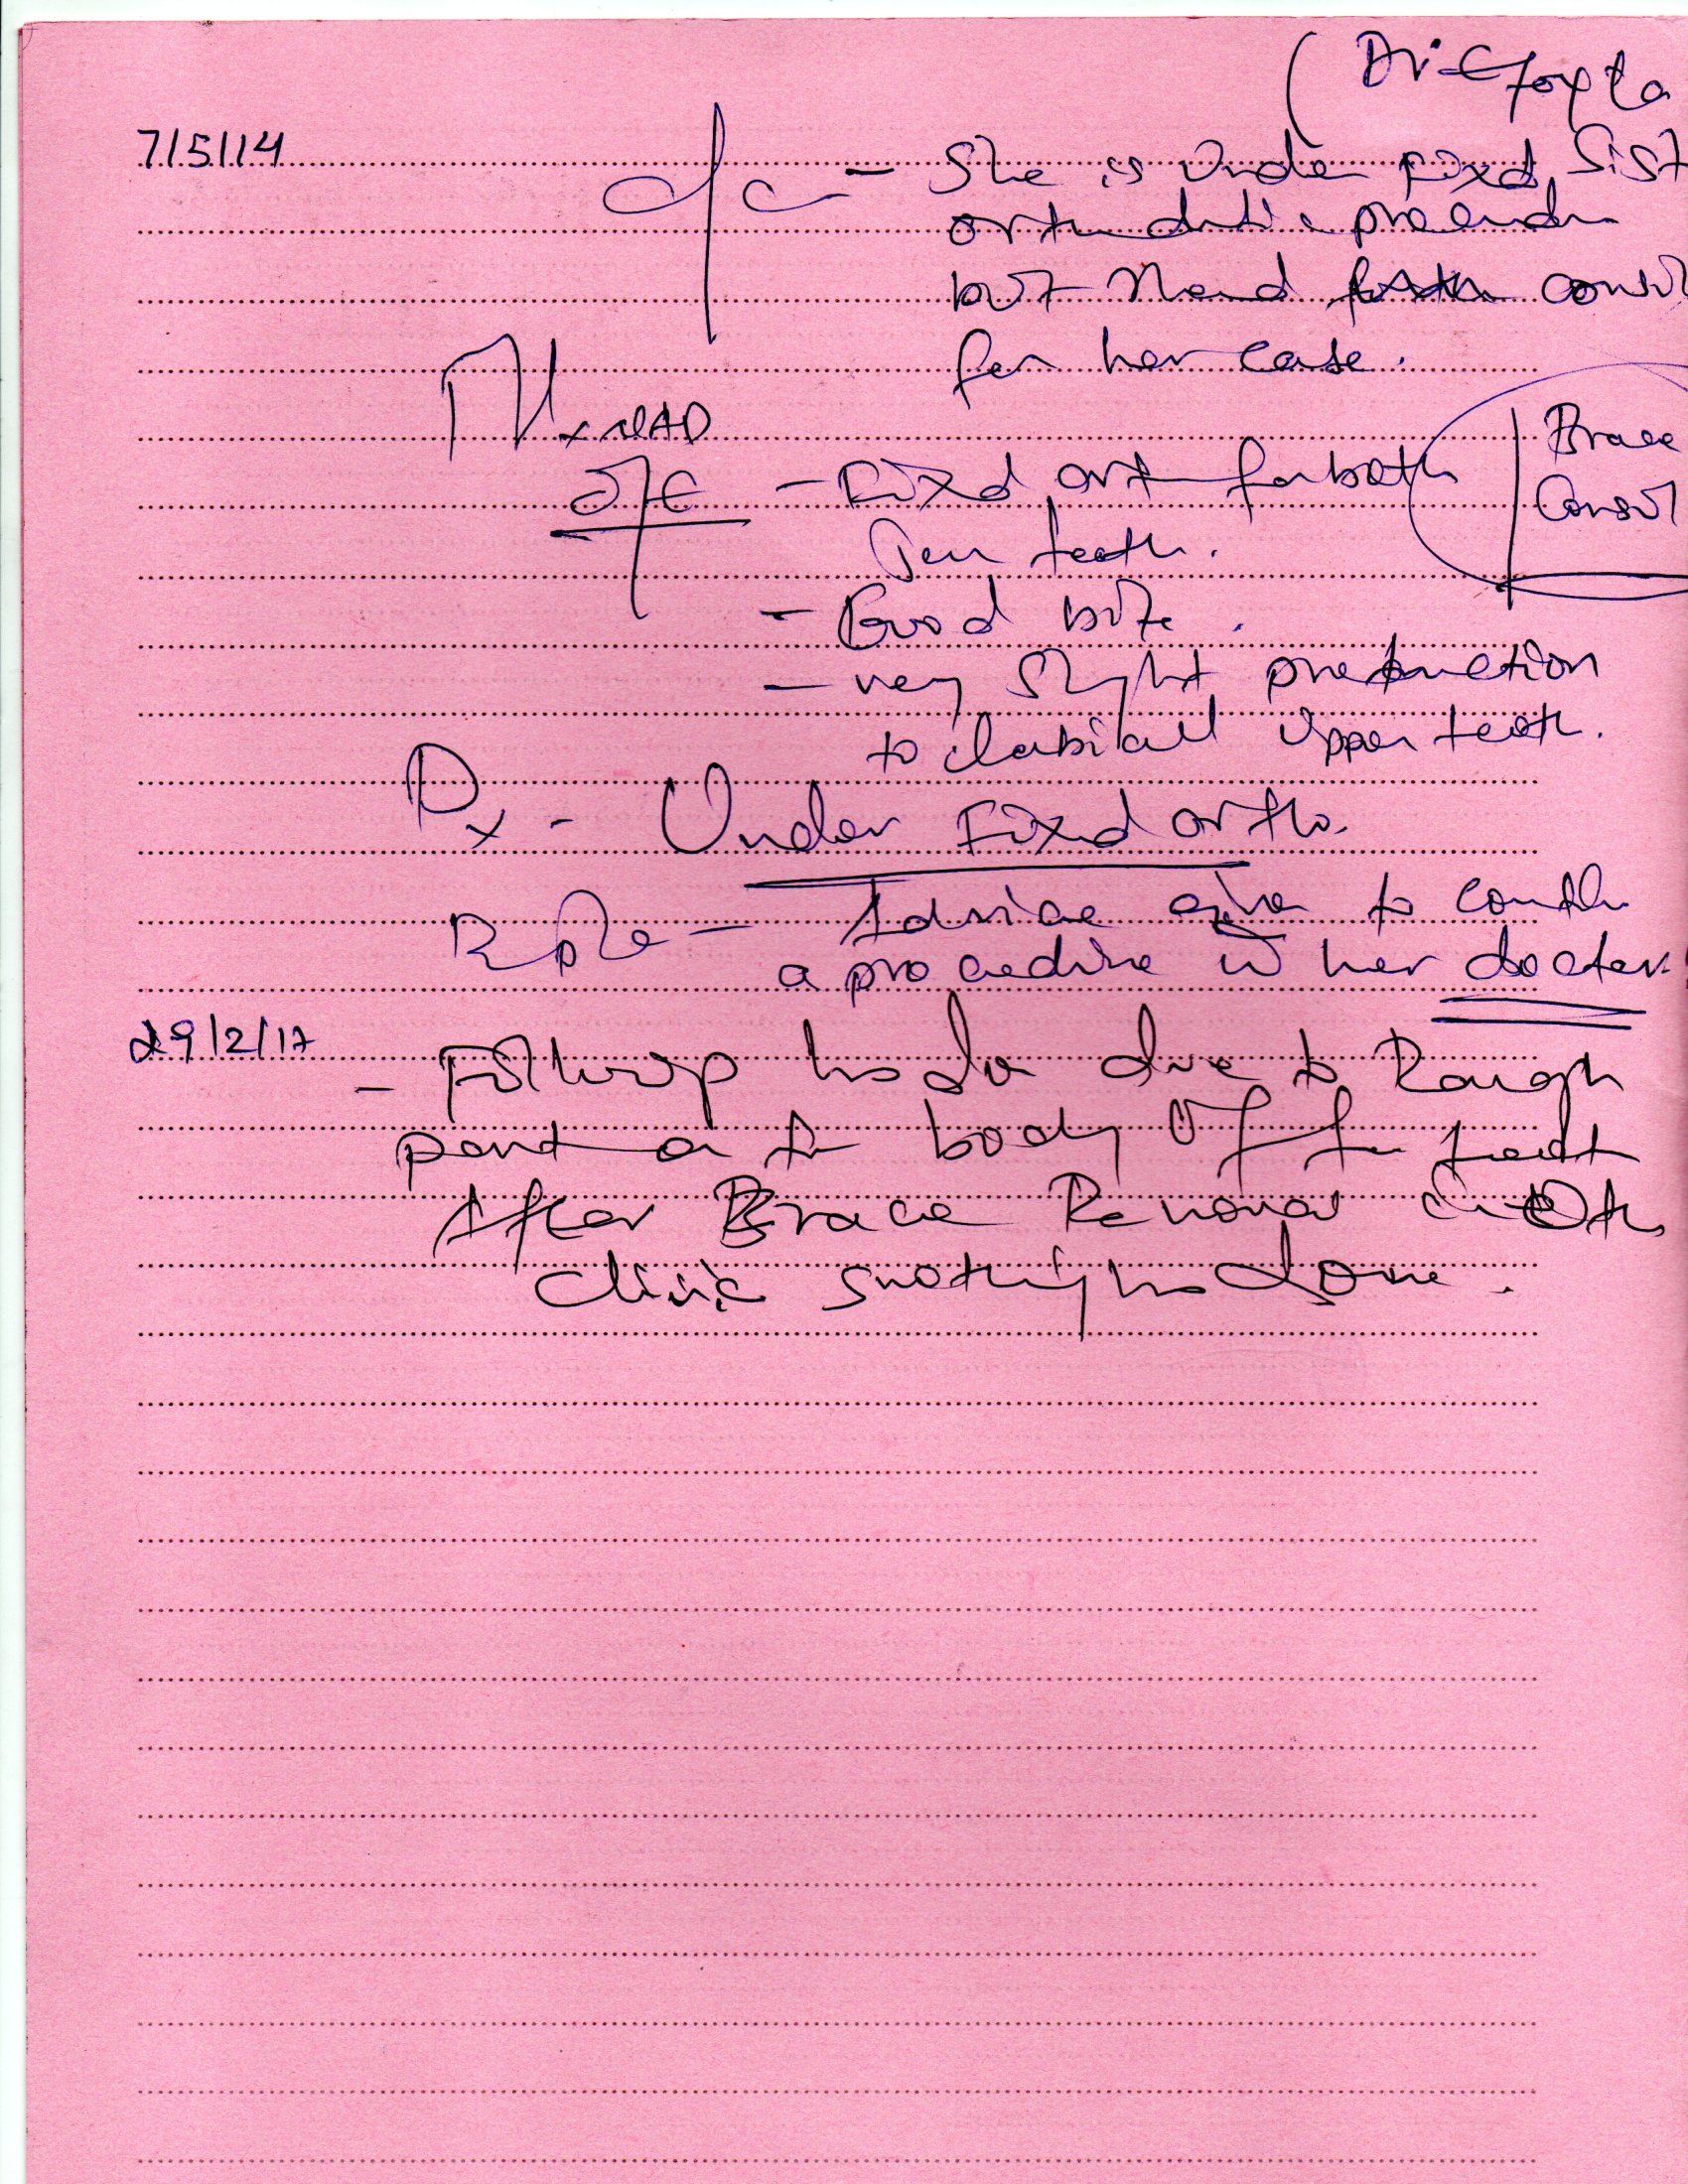 (Dr. Gopta
7/5/14
c/c - She is Under Fixed Sist
orthodntic procedr
but Need furth consul
for her case.
Mx NAD
Brace
Consul
O/E - Fixd orth for both
teeth.
- Good bite.
- very Slight protruction
to labiall Upper teeth.
Dx - Under Fixed ortho.
- Advice give to contu
a procedure w her doctor
29/2/17
- Follwup hs dn due to Rough
part on the body of the teeth
After Brace Removal in Oth
clinic smothig hs done.